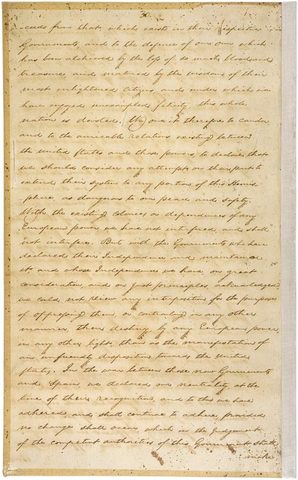 ceeds from that, which exists in their respective
Governments, and to the defence of our own, which
has been atchieved by the loss of so much blood and
treasure, and matured by the wisdom of their
most enlightened Citizens, and under which we
have enjoyed unexampled felicity, this whole
nation is devoted. We owe it therefore to candor
and to the amicable relations existing between
the United States and those powers, to declare that
we should consider any attempt on their part to
extend their system to any portion of this Hemis
phere, as dangerous to our peace and safety.
With the existing Colonies or dependencies of any
European power, we have not interfered, and shall
not interfere. But with the Governments who have
declared their Independence, and maintained
it, and whose Independence we have, on great
consideration, and on just principles, acknowledged,
we could not view any interposition for the purpose
of oppressing them, or controuling in any other
manner, their destiny, by any European power,
in any other light, than as the manifestation of
an unfriendly disposition towards the United
States. In the war between those new Governments
and Spain, we declared our neutrality, at the
time of their recognition, and to this we have
adhered, and shall continue to adhere, provided
no change shall occur, which in the judgment
of the competent authorities of this Government, shall
make